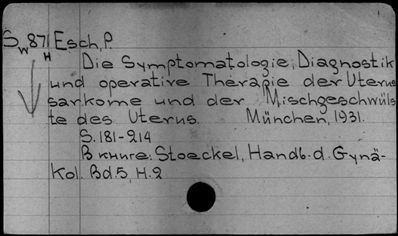 Sw871 Esch, P.
H
Die Symptomatologie, Diagnostik
und operative Therapie der Uterus
sarkome und der Mischgeschwüls
te des Uterus. München, 1931.
S. 181-214
В книге: Stoeckel, Handb. d. Gynä-
kol. Bd. 5, H. 2